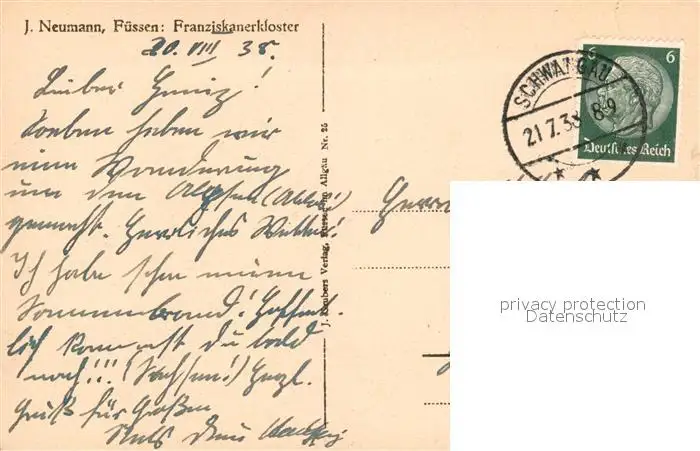 J. Neumann, Füssen: Franziskanerkloster
20. VIII 38.
Lieber Heinz!
Soeben haben wir
eine Wanderung
um den Alpsee (Allgäu)
gemacht. Herrliches Wetter!
Ich habe schon meinen
Sonnenbrand! Hoffent-
lich kommst du bald
nach!!! (Sachsen!) Herzl.
Gruß für Großen
Stets Dein
J. Heubers Verlag, Füssen im Allgäu Nr. 25
SCHWANGAU
21.7.38 8-9
6 6
Deutsches Reich
Herrn
privacy protection
Datenschutz